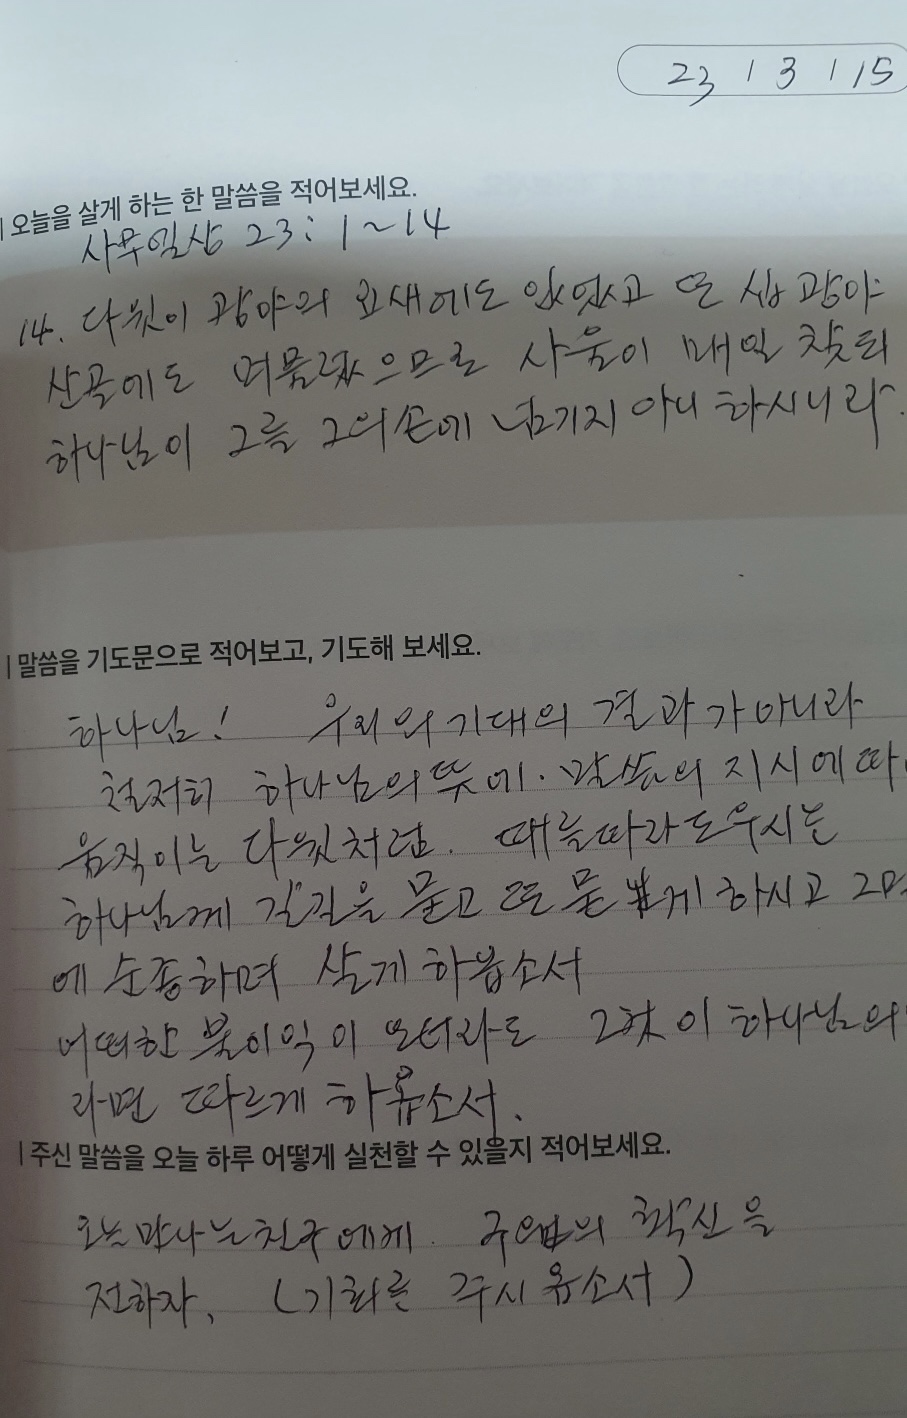 23 / 3 / 15
| 오늘을 살게 하는 한 말씀을 적어보세요.
사무엘상 23: 1~14
14. 다윗이 광야의 요새에도 있었고 또 십 광야
산골에도 머물렀으므로 사울이 매일 찾되
하나님이 그를 그의 손에 넘기지 아니 하시니라.
| 말씀을 기도문으로 적어보고, 기도해 보세요.
하나님! 우리의 기대의 결과가 아니라
철저히 하나님의 뜻에. 말씀의 지시에 따
움직이는 다윗처럼. 때를따라 도우시는
하나님께 갈길을 묻고 또 묻게 하시고
에 순종하며 살게 하옵소서
어떠한 불이익이 오더라도 그것이 하나님의
라면 따르게 하옵소서.
| 주신 말씀을 오늘 하루 어떻게 실천할 수 있을지 적어보세요.
오늘 만나는 친구에게. 구원의 확신을
전하자. (기회를 주시옵소서)